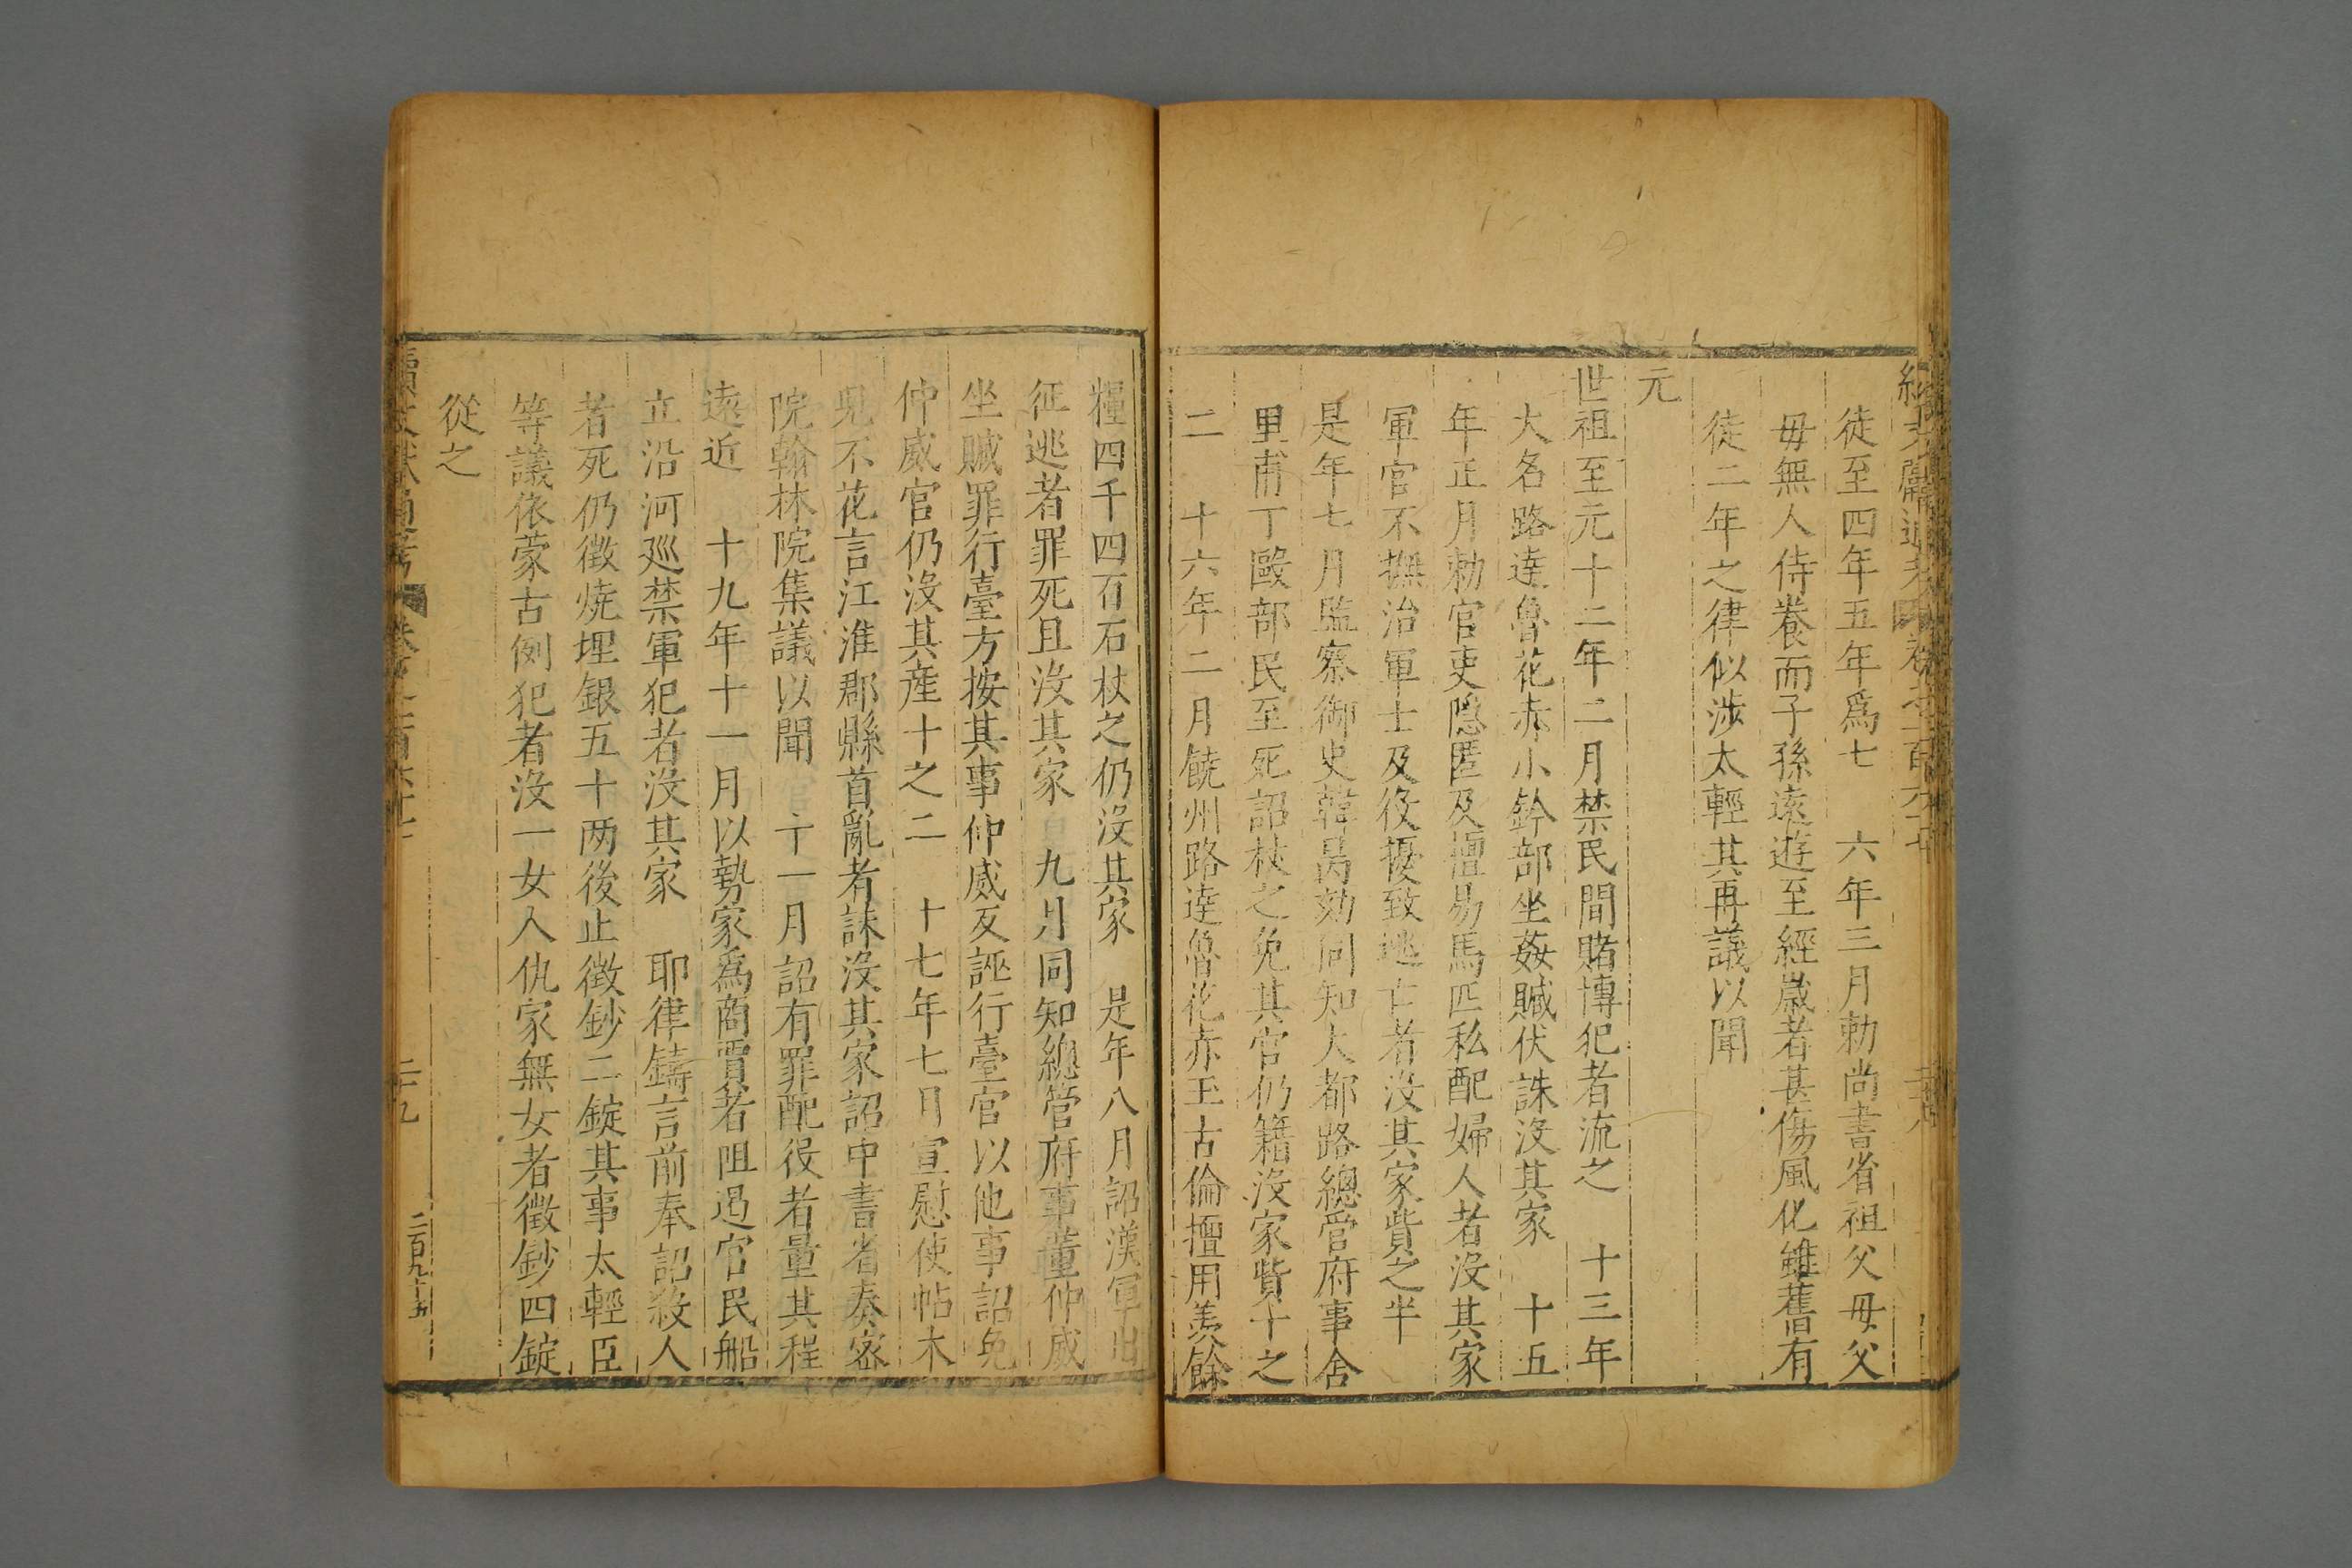 徒至四年五年爲七　六年三月勅尚書省祖父母父
毋無人侍養而子孫遠遊至經歲者甚傷風化雖舊有
徒二年之律似涉太輕其再議以聞
元
世祖至元十二年二月禁民間賭博犯者流之　十三年
大名路達魯花赤小鈐部坐姦贓伏誅沒其家　十五
年正月勅官吏隱匿及擅易馬匹私配婦人者沒其家
軍官不撫治軍士及役擾致逃亡者沒其家貲之半
是年七月監察御史韓昺劾同知大都路總管府事舍
里甫丁毆部民至死詔杖之免其官仍籍沒家貲十之
二　十六年二月饒州路達魯花赤玉古倫擅用羨餘
糧四千四百石杖之仍沒其家　是年八月詔漢軍出
征逃者罪死且沒其家　九月同知總管府事董仲威
坐贓罪行臺方按其事仲威反誣行臺官以他事詔免
仲威官仍沒其產十之二　十七年七月宣慰使帖木
兒不花言江淮郡縣首亂者誅沒其家詔中書省奏密
院翰林院集議以聞　十一月詔有罪配役者量其程
遠近　十九年十一月以勢家爲商賈者阻遏官民船
立沿河巡禁軍犯者沒其家　耶律鑄言前奉詔殺人
者死仍徵燒埋銀五十两後止徵鈔二錠其事太輕臣
等議依蒙古例犯者沒一女入仇家無女者徵鈔四錠
從之
二十九
二百九十五